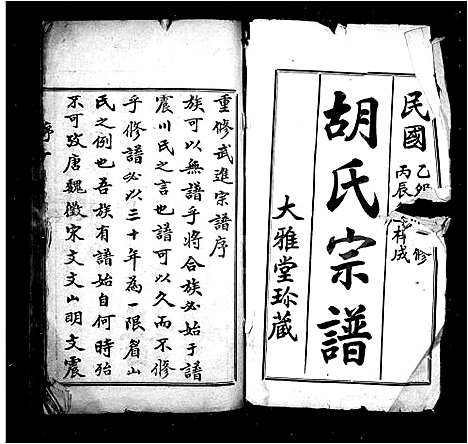 民國
乙卯
丙辰
修
梓成
胡氏宗譜
大雅堂珍藏
重修武進宗譜序
族可以無譜乎將合族必始于譜
震川氏之言也譜可以久而不修
乎修譜必以三十年為一限眉山
氏之例也吾族有譜始自何時殆
不可攷唐魏徵宋文文山明文震
序